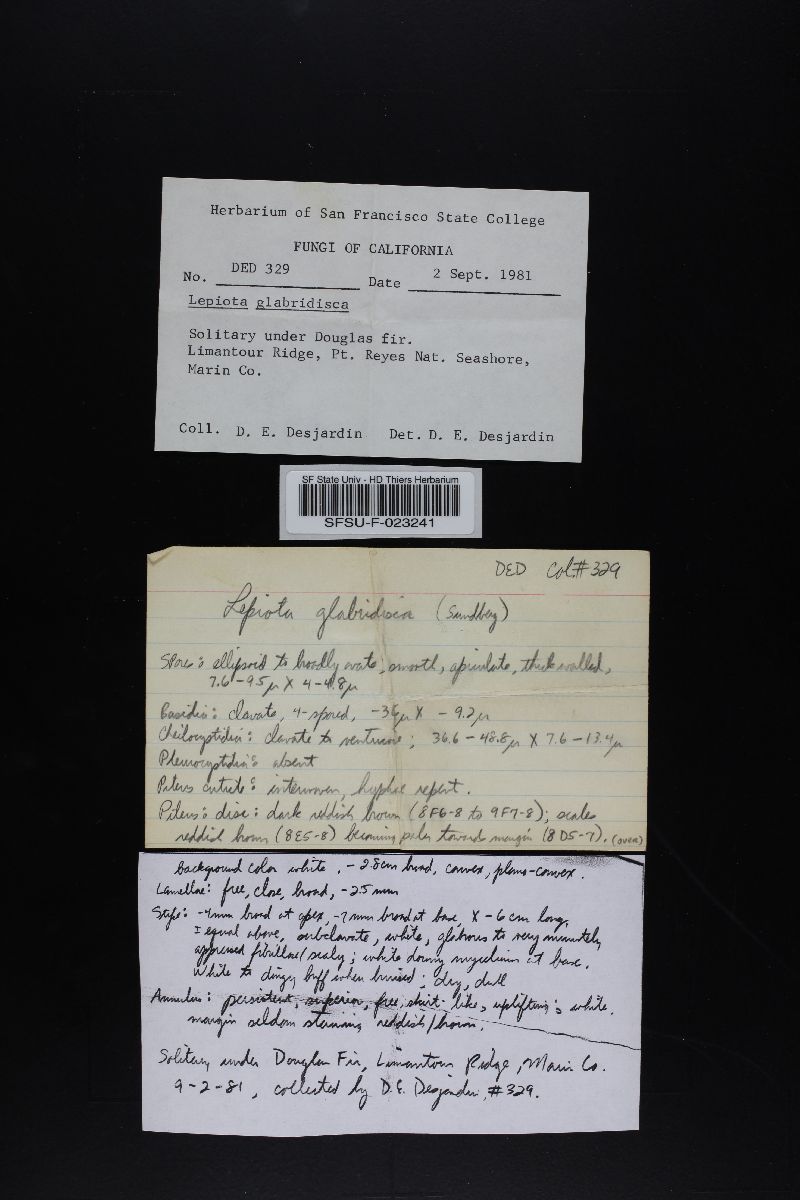 Herbarium of San Francisco State College
FUNGI OF CALIFORNIA
No. DED 329 Date 2 Sept. 1981
Lepiota glabridisca
Solitary under Douglas fir.
Limantour Ridge, Pt. Reyes Nat. Seashore,
Marin Co.
Coll. D. E. Desjardin Det. D. E. Desjardin
SF State Univ - HD Thiers Herbarium
SFSU-F-023241
DED Col.# 329
Lepiota glabridisca (Sundberg)
Spores: ellipsoid to broadly ovate, smooth, apiculate, thick walled,
7.6-9.5µ X 4-4.8µ
Basidia: clavate, 4-spored, -36µ X -9.2µ
Cheilocystidia: clavate to ventricose; 36.6-48.8µ X 7.6-13.4µ
Pleurocystidia: absent
Pileus cuticle: interwoven, hyphae repent.
Pileus: disc: dark reddish brown (8F6-8 to 9F7-8); scales
reddish brown (8E5-8) becoming paler toward margin (8D5-7). (over)
background color white. -2.8cm broad, convex, plano-convex.
Lamellae: free, close, broad, -2.5mm
Stipe: -4mm broad at apex, -7mm broad at base, X -6cm long,
± equal above, subclavate, white, glabrous to very minutely
appressed fibrillose/scaly; white downy mycelium at base.
White to dingy buff when bruised; dry, dull
Annulus: persistent, superior, free, skirt-like, uplifting; white.
margin seldom staining reddish/brown.
Solitary under Douglas Fir, Limantour Ridge, Marin Co.
9-2-81, collected by D.E. Desjardin, #329.